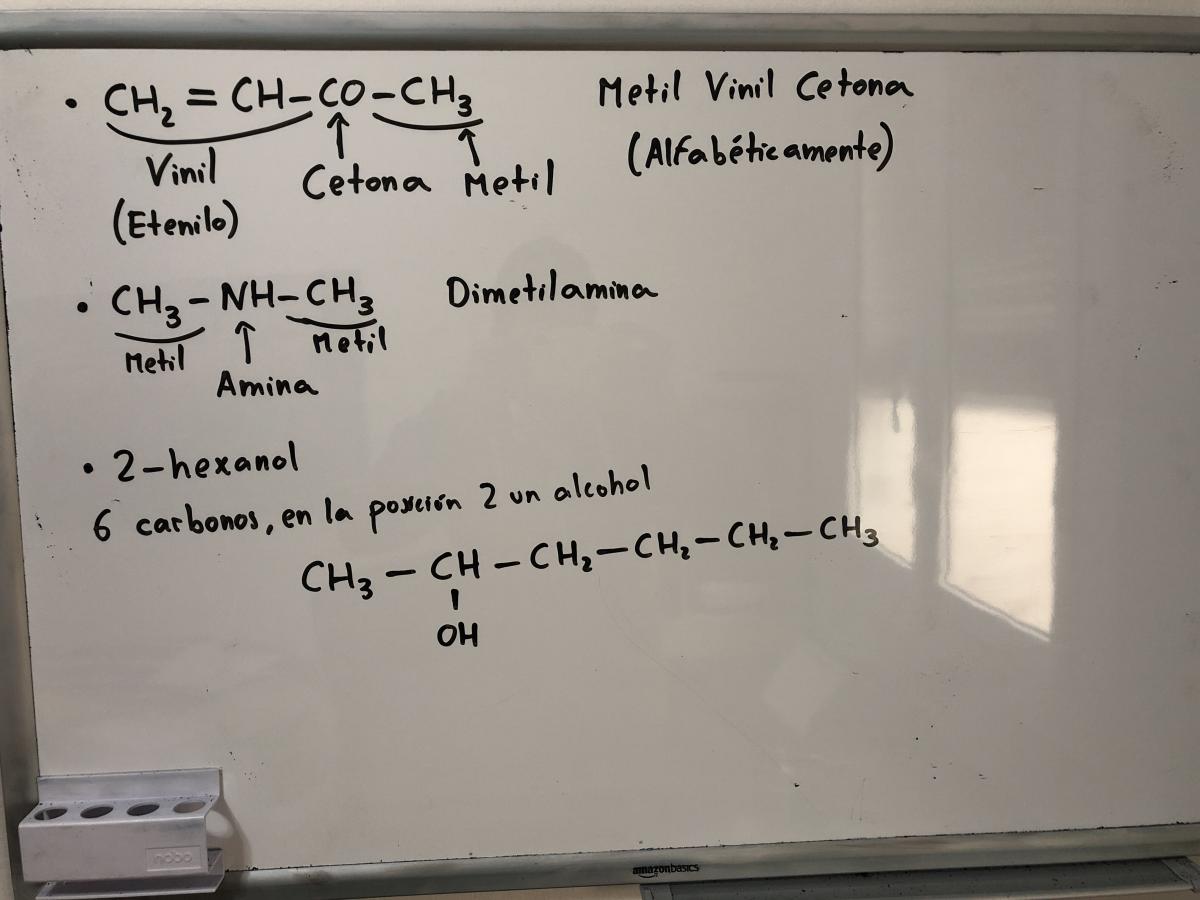 • CH₂ = CH – CO – CH₃ Metil Vinil Cetona
Vinil ↑ ↑ (Alfabéticamente)
(Etenilo) Cetona Metil
• CH₃ – NH – CH₃ Dimetilamina
Metil ↑ Metil
Amina
• 2-hexanol
6 carbonos, en la posición 2 un alcohol
CH₃ – CH – CH₂ – CH₂ – CH₂ – CH₃
OH
nobo
amazonbasics